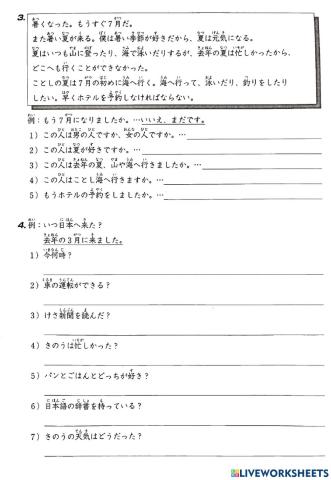 3.
暑くなった。もうすぐ7月だ。
また暑い夏が来る。僕は暑い季節が好きだから、夏は元気になる。
夏はいつも山に登ったり、海で泳いだりするが、去年の夏は忙しかったから、
どこへも行くことができなかった。
ことしの夏は7月の初めに海へ行く。海へ行って、泳いだり、釣りをしたり
したい。早くホテルを予約しなければならない。
例：もう7月になりましたか。…いいえ、まだです。
1）この人は男の人ですか、女の人ですか。…
2）この人は夏が好きですか。…
3）この人は去年の夏、山や海へ行きましたか。…
4）この人はことし海へ行きますか。…
5）もうホテルの予約をしましたか。…
4. 例：いつ日本へ来た？
去年の3月に来ました。
1）今何時？
2）車の運転ができる？
3）けさ新聞を読んだ？
4）きのうは忙しかった？
5）パンとごはんとどっちが好き？
6）日本語の辞書を持っている？
7）きのうの天気はどうだった？
LIVEWORKSHEETS